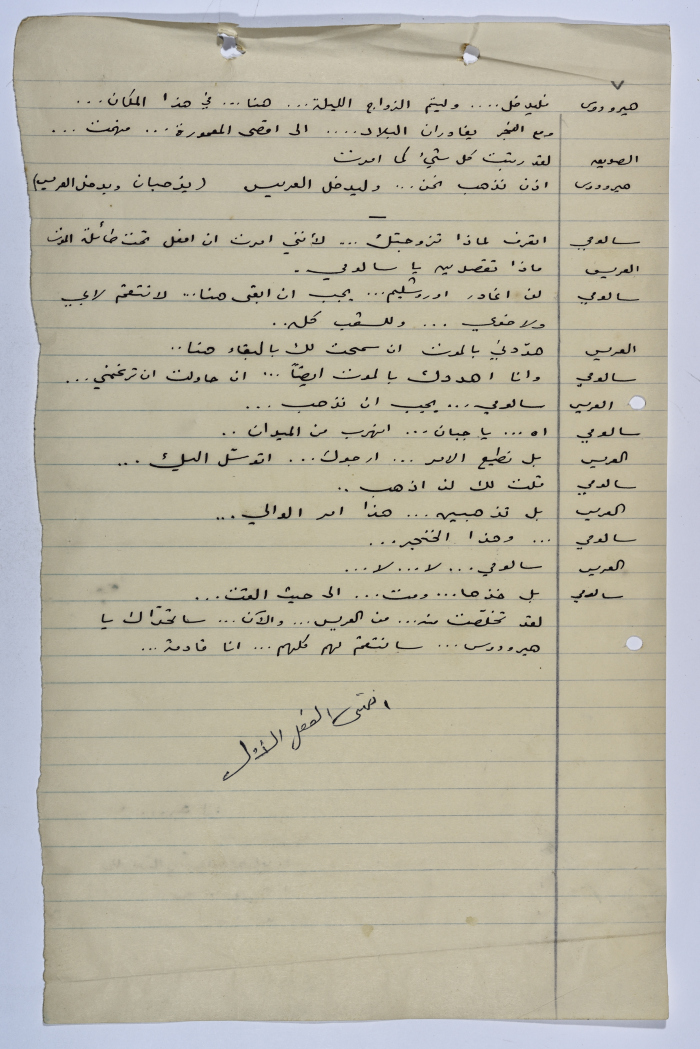 ٧
هيرودوس فليدخل .... وليتم الزواج الليلة ... هنا ... في هذا المكان ...
ومع الفجر يغادران البلاد .... الى اقصى المعمورة ... فهمت ...
الصوت لقد رتبت كل شيء كما امرت
هيرودوس اذن نذهب نحن ... وليدخل العريس (يذهبان ويدخل العريس)
سالومي اتعرف لماذا تزوجتك ... لأنني امرت ان افعل تحت طائلة الموت
العريس ماذا تقصدين يا سالومي .
سالومي لن اغادر اورشليم ... يجب ان ابقى هنا ... لانتقم لابي
ولاخوتي ... وللشعب كله ..
العريس هددني بالموت ان سمحت لك بالبقاء هنا ..
سالومي وانا اهددك بالموت ايضاً ... ان حاولت ان ترغمني ...
العريس سالومي ... يجب ان نذهب ...
سالومي اه ... يا جبان ... اتهرب من الميدان ..
العريس بل نطيع الامر ... ارجوك ... اتوسل اليك ...
سالومي قلت لك لن اذهب ..
العريس بل تذهبين ... هذا امر الوالي ...
سالومي ... وهذا الخنجر ...
العريس سالومي ... لا ... لا ...
سالومي بل خذها ... ومت ... الى حيث القت ...
لقد تخلصت منه ... من العريس ... والآن ... ساتحداك يا
هيرودوس ... سانتقم لهم كلهم ... انا قادمة ...
انتهى الفصل الأول